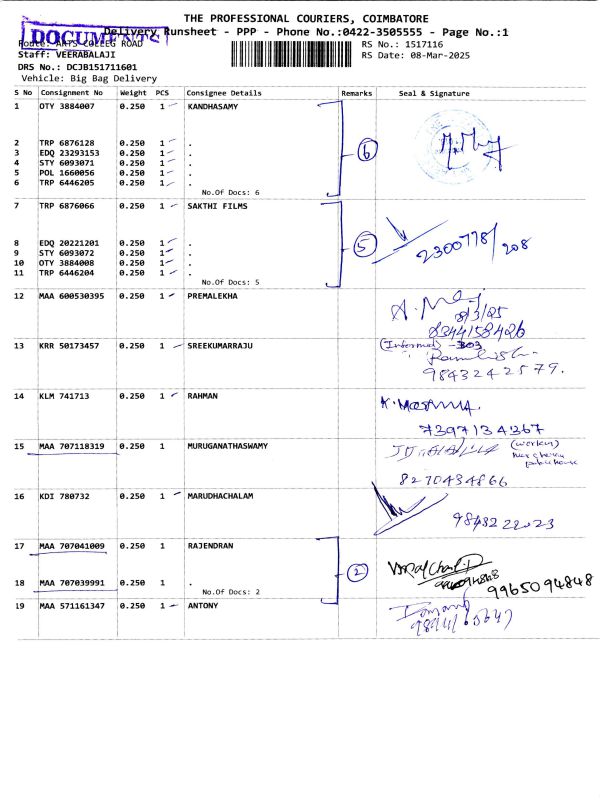 THE PROFESSIONAL COURIERS, COIMBATORE
DOCUMENTS
Delivery Runsheet - PPP - Phone No.:0422-3505555 - Page No.:1
Route: ARTS COLLEG ROAD
RS No.: 1517116
Staff: VEERABALAJI
RS Date: 08-Mar-2025
DRS No.: DCJB151711601
Vehicle: Big Bag Delivery
S No Consignment No Weight PCS Consignee Details Remarks Seal & Signature
1 OTY 3884007 0.250 1 KANDHASAMY
2 TRP 6876128 0.250 1 .
3 EDQ 23293153 0.250 1 .
4 STY 6093071 0.250 1 .
5 POL 1660056 0.250 1 .
6 TRP 6446205 0.250 1 .
No.Of Docs: 6
6
7 TRP 6876066 0.250 1 SAKTHI FILMS
8 EDQ 20221201 0.250 1 .
9 STY 6093072 0.250 1 .
10 OTY 3884008 0.250 1 .
11 TRP 6446204 0.250 1 .
No.Of Docs: 5
5
2300778/208
12 MAA 600530395 0.250 1 PREMALEKHA
8/3/25
8344158426
13 KRR 50173457 0.250 1 SREEKUMARRAJU
(Informed) - 303
9843242579.
14 KLM 741713 0.250 1 RAHMAN
7397134367
15 MAA 707118319 0.250 1 MURUGANATHASWAMY
8270434866
16 KDI 780732 0.250 1 MARUDHACHALAM
9843222023
17 MAA 707041009 0.250 1 RAJENDRAN
18 MAA 707039991 0.250 1 .
No.Of Docs: 2
2
9965094848
19 MAA 571161347 0.250 1 ANTONY